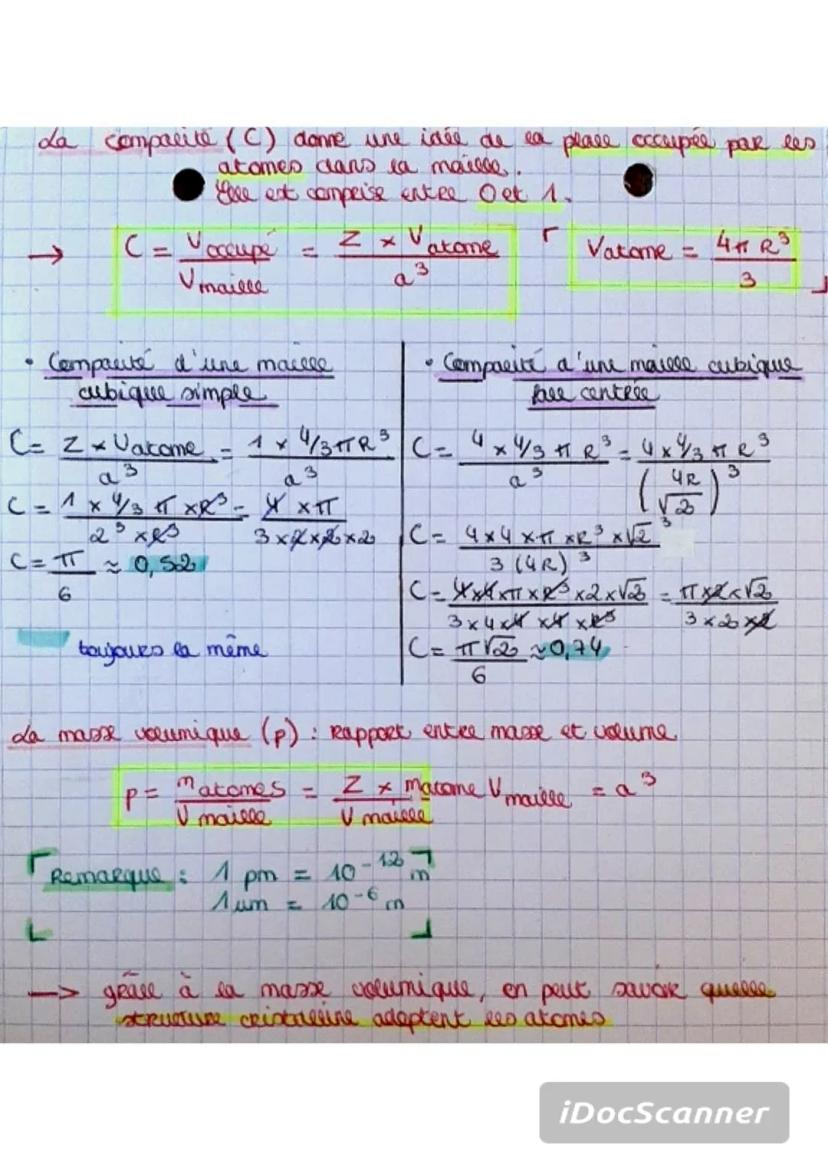 La compacité (C) donne une idée de la place occupée par les
atomes dans la maille.
Elle est comprise entre 0 et 1.
→ C = Voccupé / Vmaille = Z × Vatome / a³
Vatome = 4πR³ / 3
• Compacité d'une maille
cubique simple
C = Z × Vatome / a³ = 1 × 4/3 π R³ / a³
C = 1 × 4/3 π × R³ / 2³ × R³ = 4 × π / 3 × 2 × 2 × 2
C = π / 6 ≈ 0,52
toujours la même
• Compacité d'une maille cubique
face centrée
C = 4 × 4/3 π R³ / a³ = 4 × 4/3 π R³ / (4R / √2)³
C = 4 × 4 × π × R³ × √2³ / 3 (4R)³
C = 4 × 4 × π × R³ × 2 × √2 / 3 × 4 × 4 × 4 × R³ = π × 2 × √2 / 3 × 2 × 2
C = π√2 / 6 ≈ 0,74
La masse volumique (ρ) : rapport entre masse et volume
ρ = matomes / Vmaille = Z × matome / Vmaille Vmaille = a³
Remarque : 1 pm = 10⁻¹² m
1 um = 10⁻⁶ m
—> grâce à la masse volumique, on peut savoir quelle
structure cristalline adoptent les atomes
iDocScanner